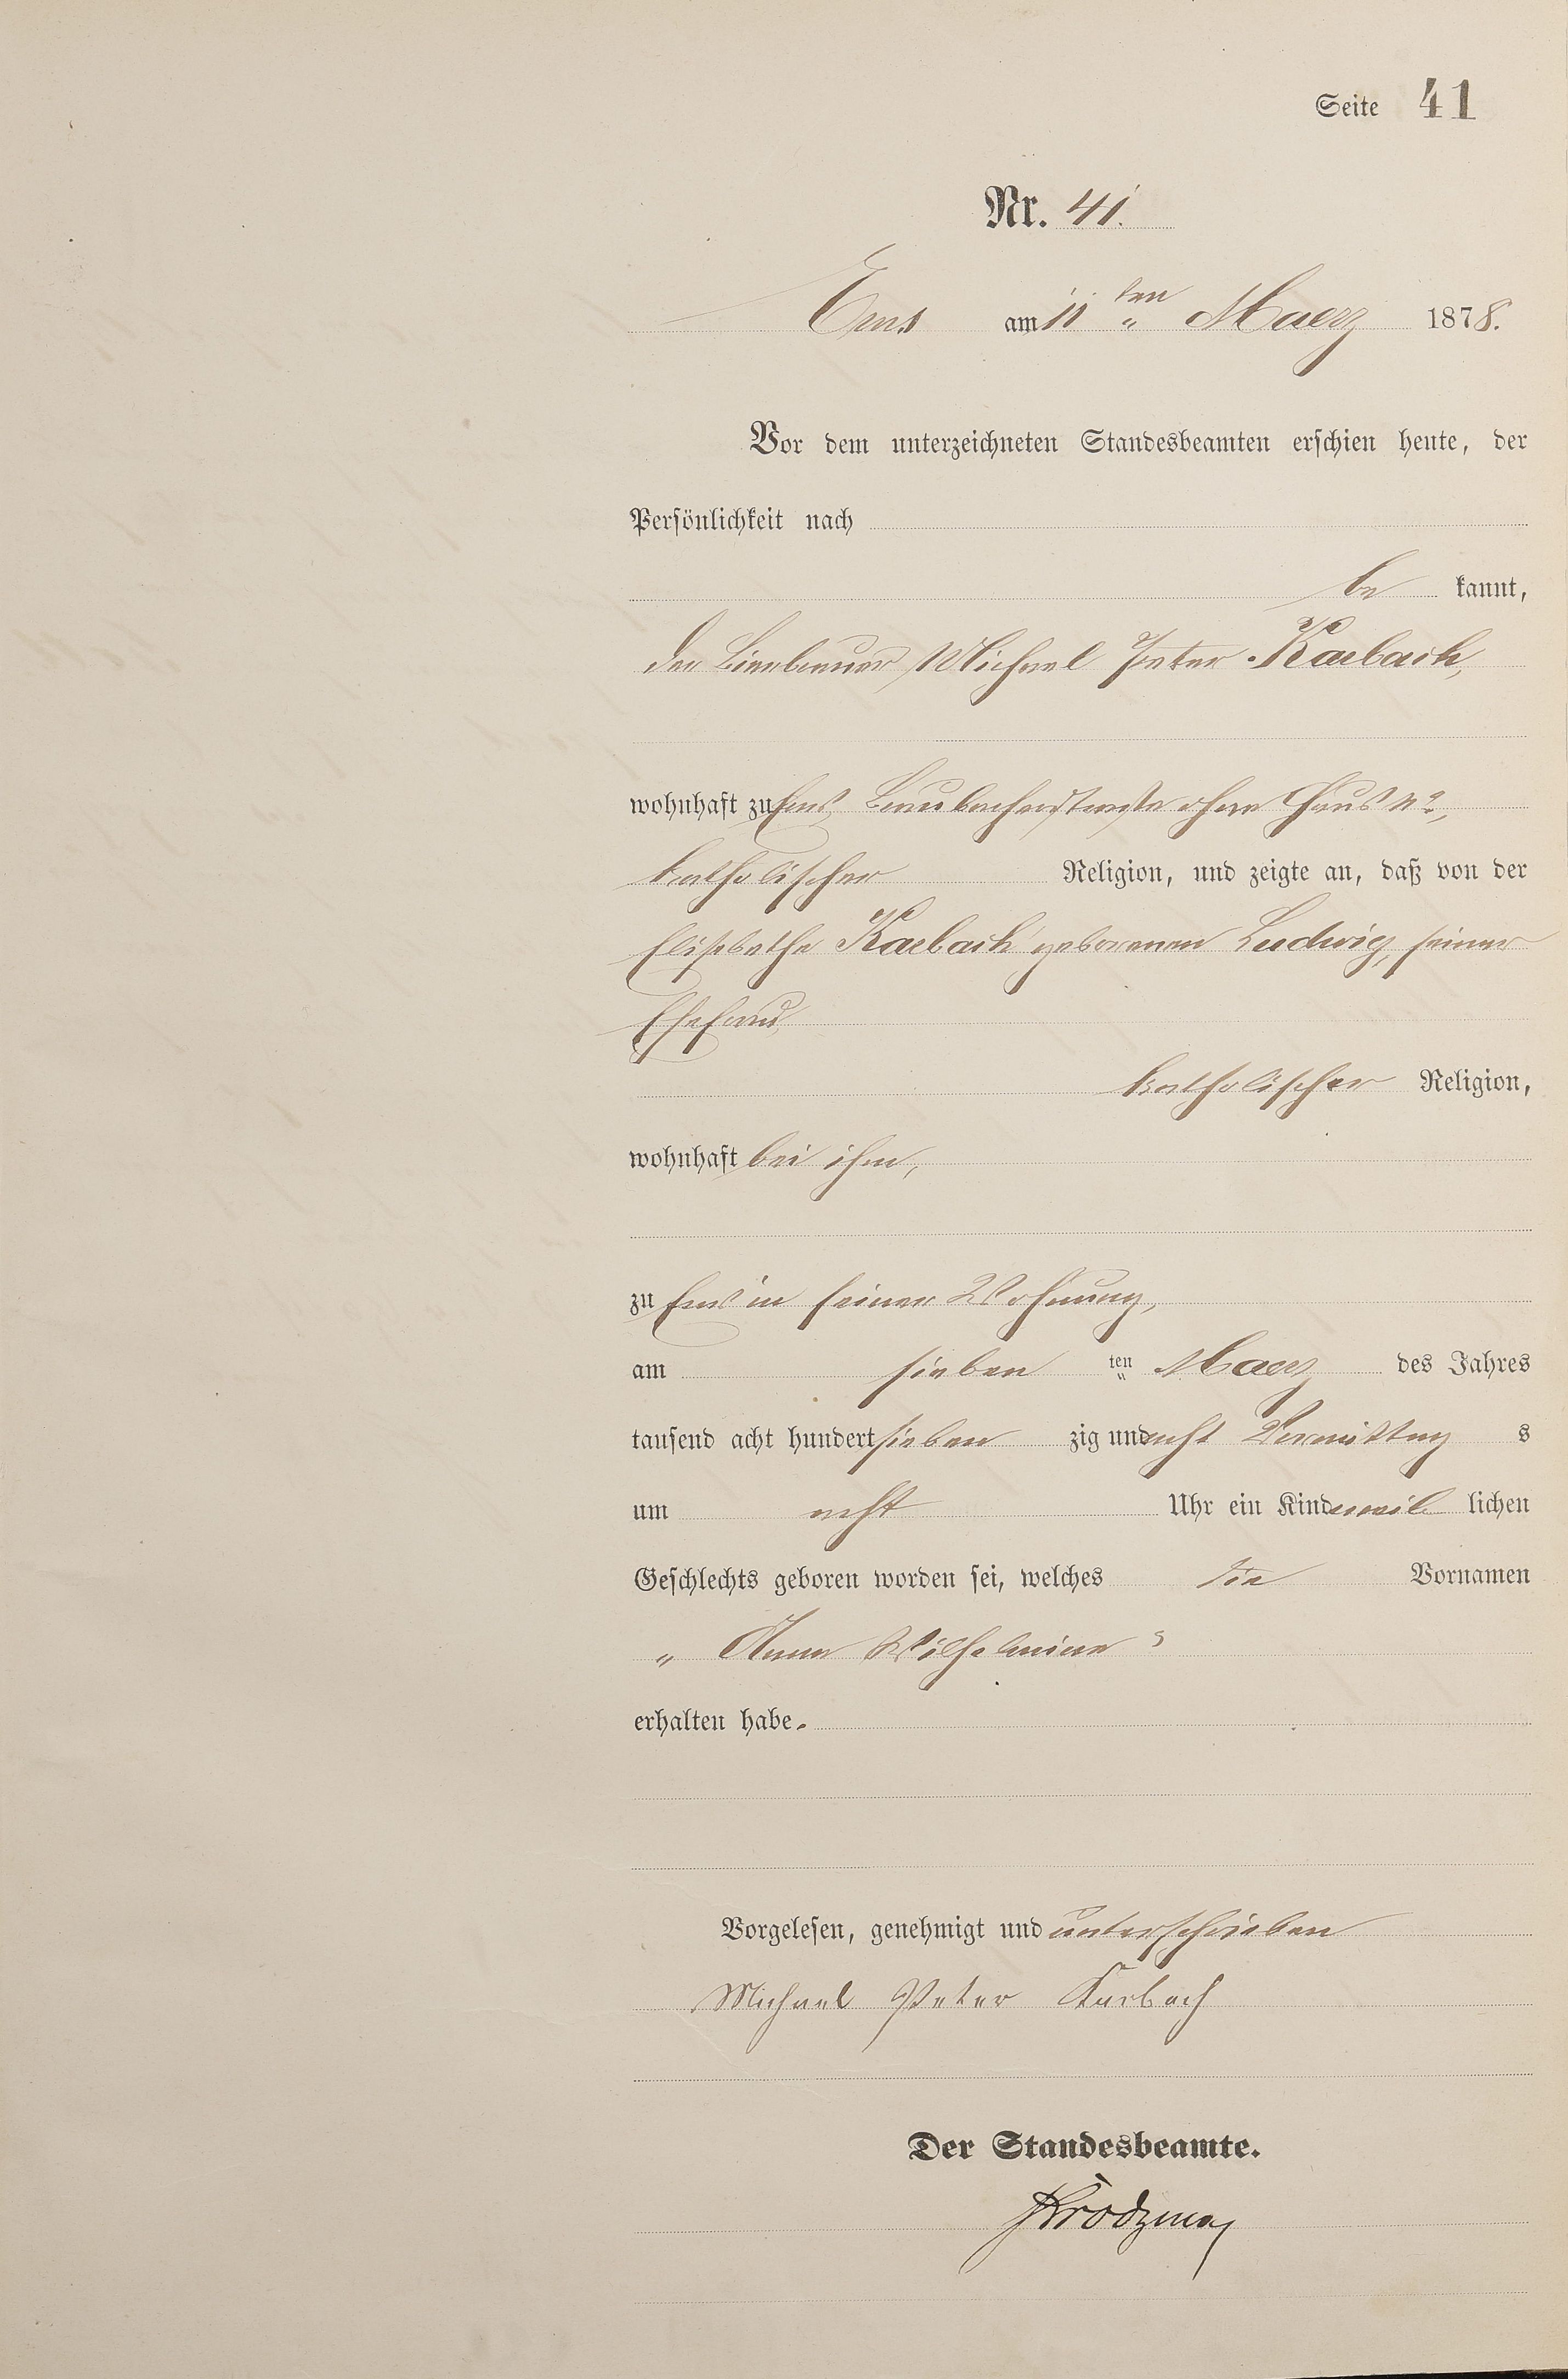 Seite 41
Nr. 41.
Ems am 11ten „ Maerz 1878.
Vor dem unterzeichneten Standesbeamten erschien heute, der
Persönlichkeit nach
be kannt,
der Bierbrauer Michael Peter Karbach,
wohnhaft zu Ems, Braubacherstraße ohne Haus No,
katholischer Religion, und zeigte an, daß von der
Elisabetha Karbach geborenen Ludwig, seiner
Ehefrau,
katholischer Religion,
wohnhaft bei ihm,
zu Ems in seiner Wohnung,
am sieben ten „ Maerz des Jahres
tausend acht hundert sieben zig und acht Vormittag s
um acht Uhr ein Kind weib lichen
Geschlechts geboren worden sei, welches die Vornamen
„ Anna Wilhelmine "
erhalten habe.
Vorgelesen, genehmigt und unterschrieben
Michael Peter Karbach
Der Standesbeamte.